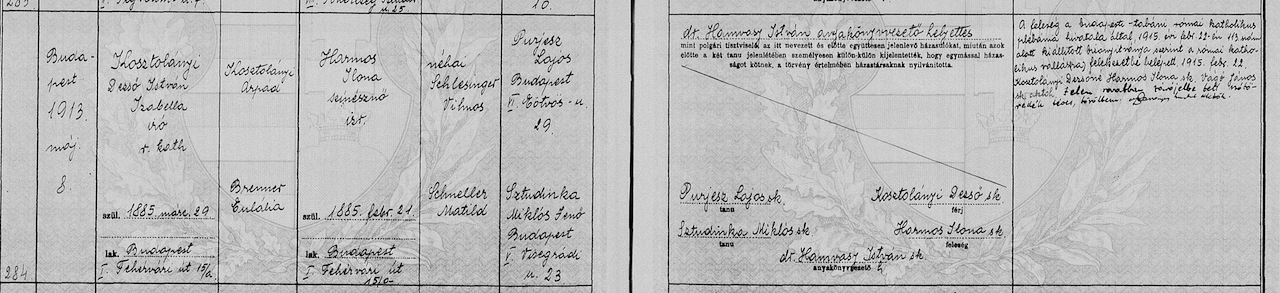 283
10.
Buda-
pest
1913.
máj.
8.
284
Kosztolányi
Dezső István
Izabella
író
r. kath
szül. 1885. márc. 29
lak. Budapest
I. Fehérvári út 15/a
Kosztolányi
Árpád
Brenner
Eulália
Harmos
Ilona
színésznő
izr.
szül. 1885. febr. 21.
lak. Budapest
I. Fehérvári út
15/a
néhai
Schlesinger
Vilmos
Schneller
Matild
Purjesz
Lajos
Budapest
VI. Eötvös-u.
29.
Sztudinka
Miklós Jenő
Budapest
V. Visegrádi
u. 23
dr. Hamvasy István anyakönyvvezető helyettes
mint polgári tisztviselő az itt nevezett és előtte együttesen jelenlevő házasulókat, miután azok
előtte a két tanu jelenlétében személyesen és külön-külön kijelentették, hogy egymással házas-
ságot kötnek, a törvény értelmében házastársaknak nyilvánította.
Purjesz Lajos sk.
tanu
Kosztolányi Dezső sk
férj
Sztudinka Miklós sk
tanu
Harmos Ilona sk
feleség
dr. Hamvasy István sk.
anyakönyvvezető h.
A feleség a budapesti-tabáni római katholikus
plébánia hivatala által, 1915. évi febr. 22-én 113 szám
alatt kiállított bizonyítványa szerint a római katho-
likus vallás(ra) felekezetbe belépett, 1915. febr. 22.
Kosztolányi Dezsőné Harmos Ilona sk. Vágó János
sk.